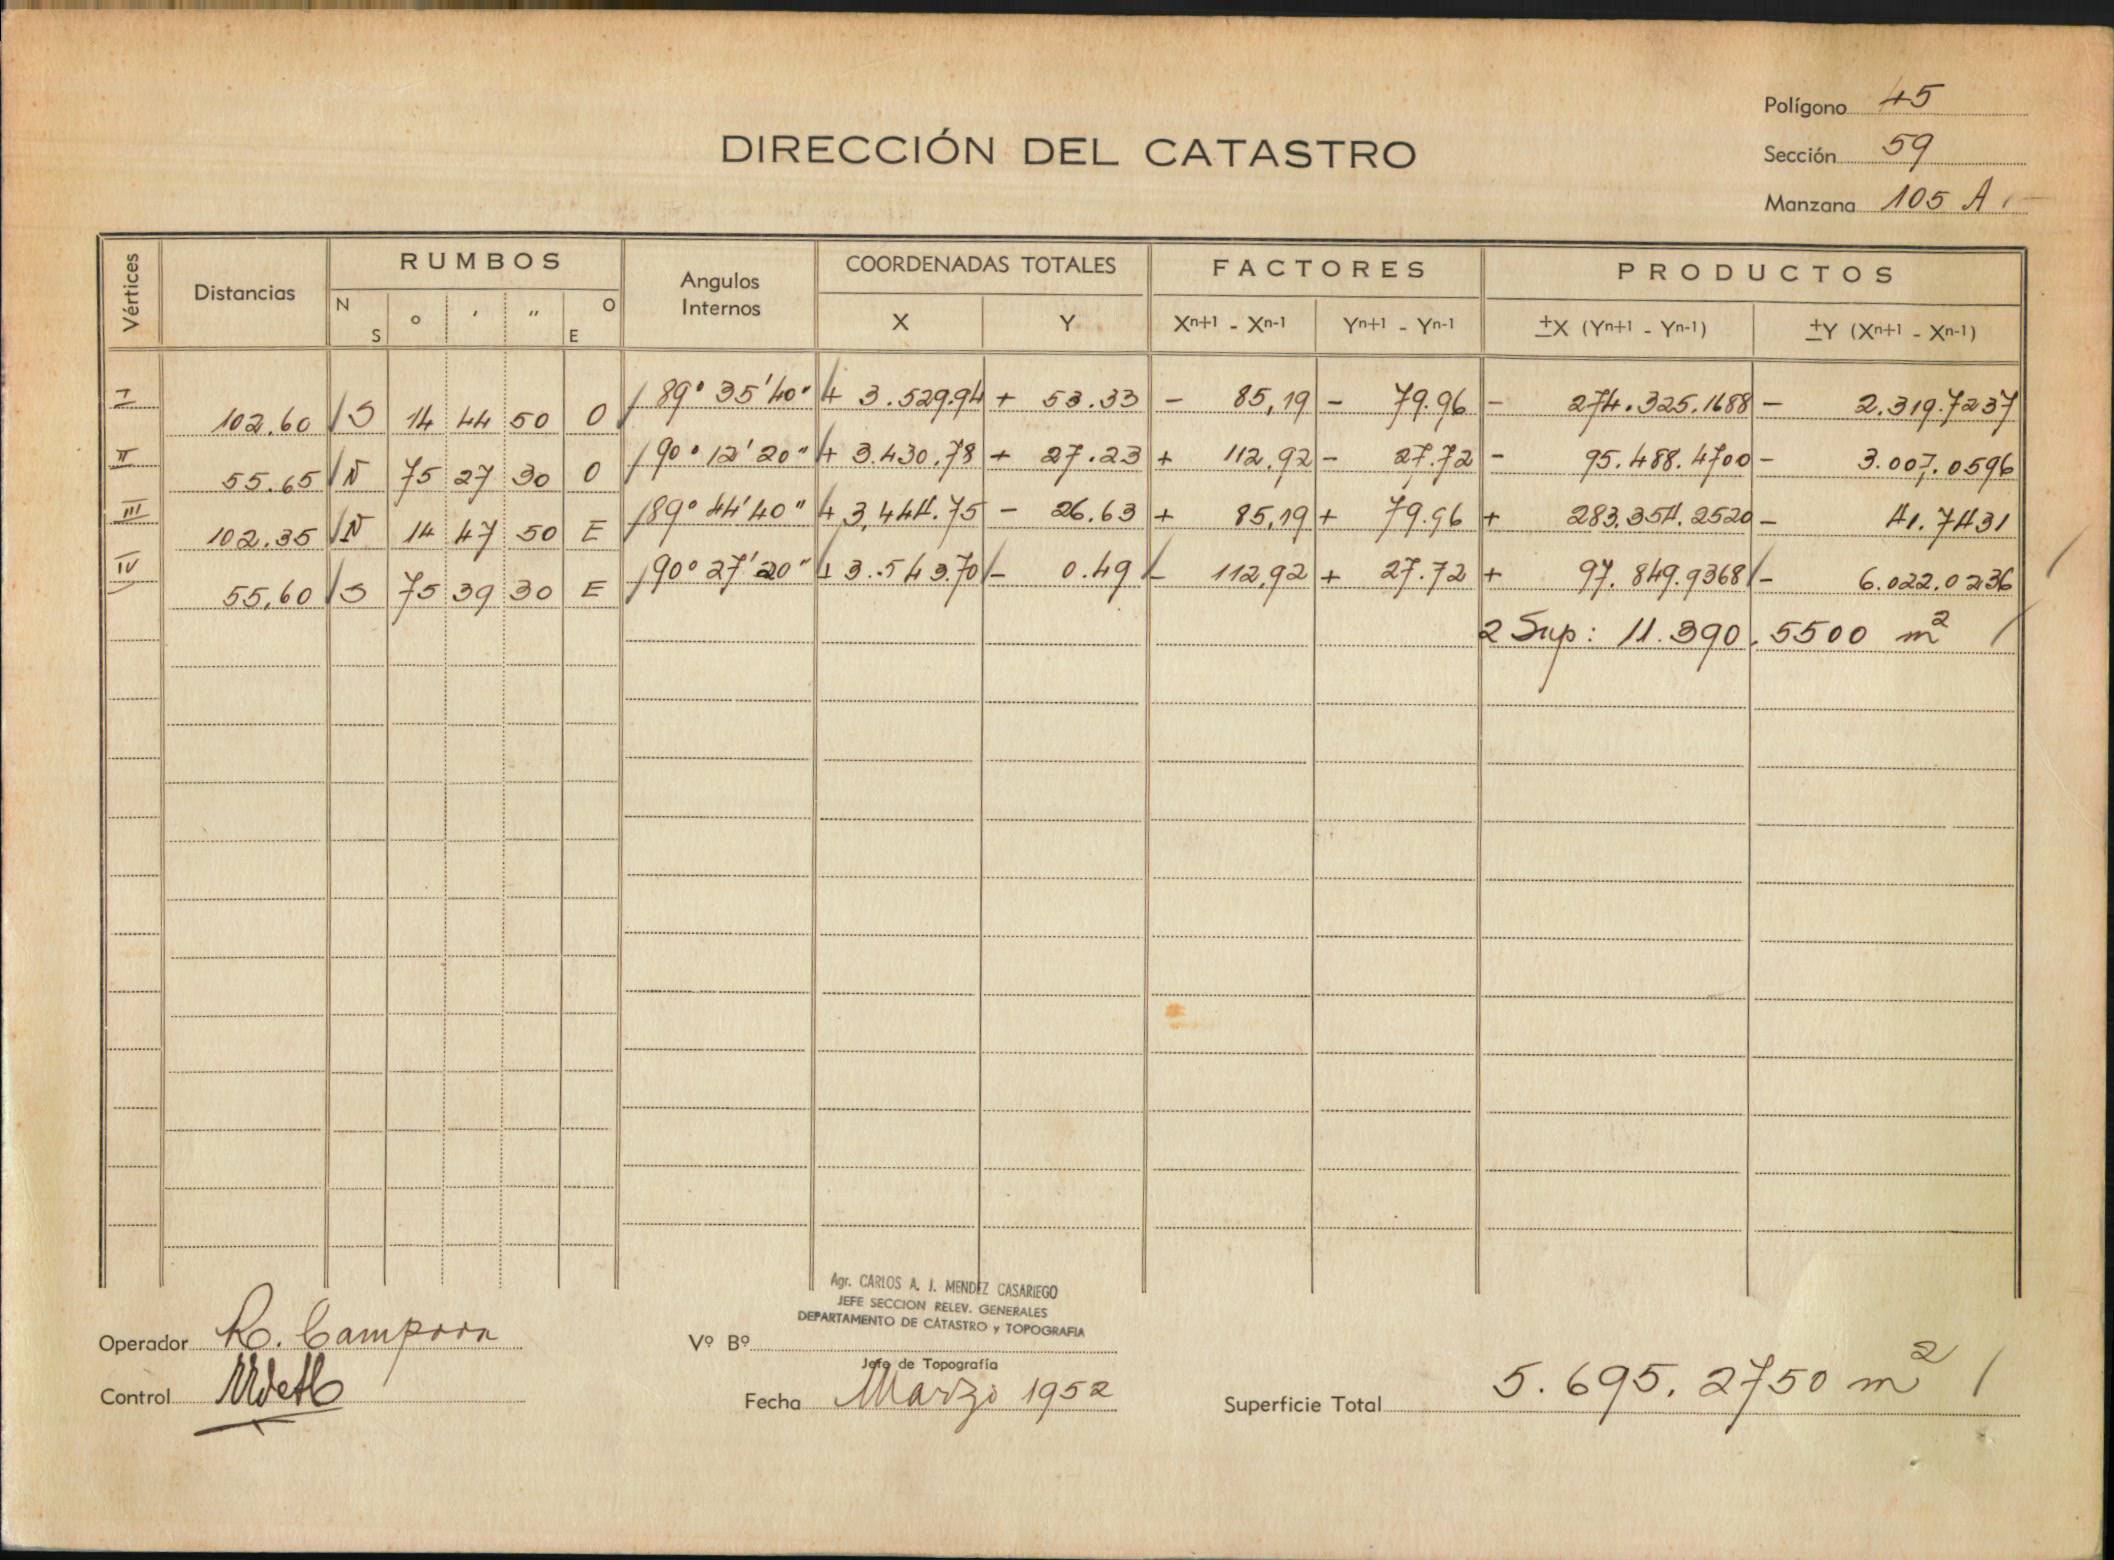 Polígono 45
DIRECCIÓN DEL CATASTRO
Sección 59
Manzana 105 A
Vértices Distancias RUMBOS N S ° ' " O E Angulos Internos COORDENADAS TOTALES X Y FACTORES Xn+1 - Xn-1 Yn+1 - Yn-1 PRODUCTOS ±X (Yn+1 - Yn-1) ±Y (Xn+1 - Xn-1)
I 102.60 S 14 44 50 O 89° 35' 40" + 3.529.94 + 53.33 - 85,19 - 79.96 - 274.325.1688 - 2.319.7237
II 55.65 N 75 27 30 O 90° 12' 20" + 3.430.78 + 27.23 + 112,92 - 27.72 - 95.488.4700 - 3.007.0596
III 102.35 N 14 47 50 E 89° 44' 40" + 3,444.75 - 26.63 + 85,19 + 79.96 + 283.354.2520 - 41.7431
IV 55,60 S 75 39 30 E 90° 27' 20" + 3.543.70 - 0.49 - 112,92 + 27.72 + 97.849.9368 - 6.022.0236
2 Sup: 11.390.5500 m²
Agr. CARLOS A. J. MENDEZ CASARIEGO
JEFE SECCION RELEV. GENERALES
DEPARTAMENTO DE CATASTRO y TOPOGRAFIA
Operador R. Campora
Vº Bº
Jefe de Topografía
Control
Fecha Marzo 1952
Superficie Total 5.695.2750 m²